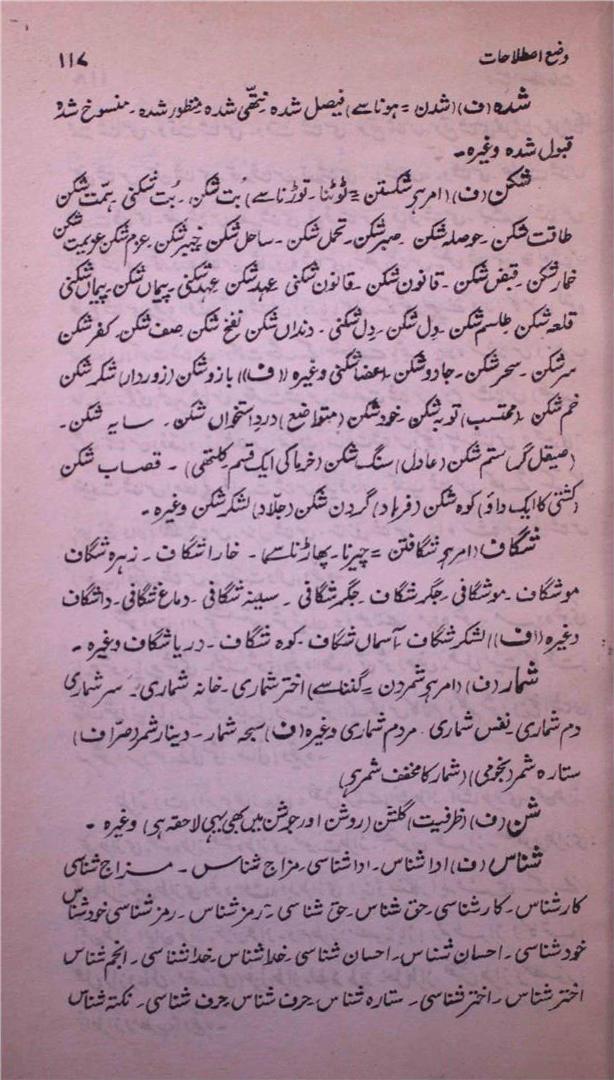 وضع اصطلاحات ۱۱۷
شدہ (ف) (شدن = ہونا سے) فیصل شدہ نتھّی شدہ منظور شدہ ۔ منسوخ شدہ
قبول شدہ وغیرہ ۔
شکن (ف) (امر ہے شکستن = ٹوٹنا ۔ توڑنا سے) بُت شکن ۔ بُت شکنی ہمّت شکن
طاقت شکن ۔ حوصلہ شکن ۔ صبر شکن ۔ تحمل شکن ۔ ساحل شکن خیبر شکن ۔ عزم شکن عزیمت شکن
خمار شکن ۔ قبض شکن ۔ قانون شکن ۔ قانون شکنی عہد شکن عہد شکنی ۔ پیماں شکن ۔ پیماں شکنی
قلعہ شکن طلسم شکن ۔ دل شکن ۔ دل شکنی ۔ دنداں شکن نفخ شکن صف شکن کفر شکن
سر شکن ۔ سحر شکن ۔ جادو شکن ۔ اعضا شکنی وغیرہ ((ف)) بازو شکن (زوردار) شکر شکن
خم شکن (محتسب) توبہ شکن خود شکن (متواضع) درد استخواں شکن ۔ سایہ شکن ۔
(صیقل گر) ستم شکن (عادل) سنگ شکن (خرما کی ایک قسم کلتھی) ۔ قصاب شکن
(کشتی کا ایک داؤ) کوہ شکن (فرہاد) گردن شکن (جلّاد) لشکر شکن وغیرہ ۔
شگاف (امر ہے شگافتن = چیرنا ۔ پھاڑنا سے) ۔ خارا شگاف ۔ زہرہ شگاف
موشگاف ۔ موشگافی ۔ جگر شگاف ۔ جگر شگافی ۔ سینہ شگافی ۔ دماغ شگافی ۔ دلشگاف
وغیرہ ((ف)) لشکر شگاف ۔ آسماں شگاف ۔ کوہ شگاف ۔ دریا شگاف وغیرہ ۔
شمار (ف) (امر ہے شمردن = گننا سے) اختر شماری ۔ خانہ شماری ۔ سر شماری
دم شماری نفس شماری ۔ مردم شماری وغیرہ (ف) سبحہ شمار ۔ دینار شمر (صرّاف)
ستارہ شمر (نجومی) (شمار کا مخفف شمر ہے)
شن (ف) (ظرفیت) گلشن (روشن اور جوشن میں بھی یہی لاحقہ ہے) وغیرہ ۔
شناس (ف) ادا شناس ۔ ادا شناسی ۔ مزاج شناس ۔ مزاج شناسی
کار شناس ۔ کار شناسی ۔ حق شناس ۔ حق شناسی ۔ رمز شناس ۔ رمز شناسی خود شناس
خود شناسی ۔ احسان شناس ۔ احسان شناسی ۔ خدا شناس ۔ خدا شناسی ۔ انجم شناس
اختر شناس ۔ اختر شناسی ۔ ستارہ شناس حرف شناس حرف شناسی ۔ نکتہ شناس